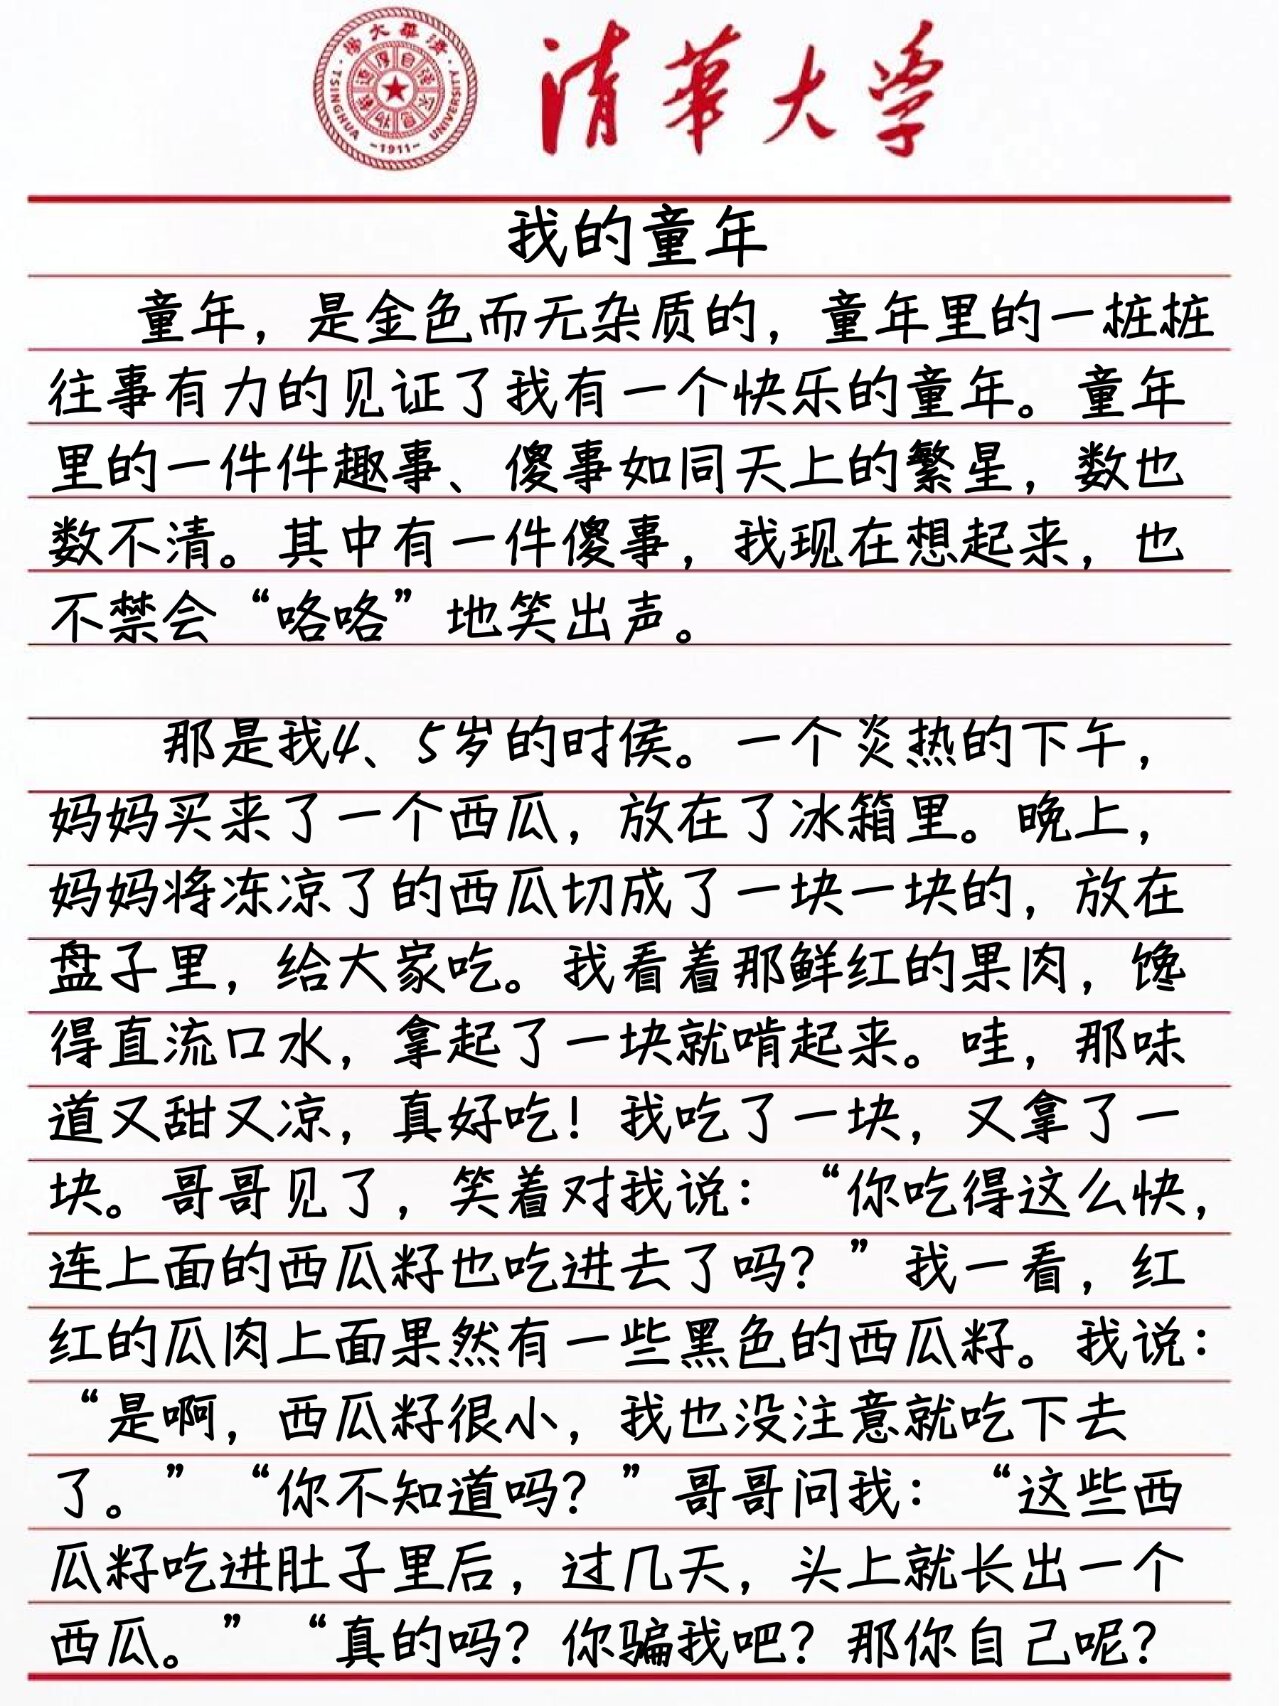 清华大学
TSINGHUA UNIVERSITY
自强不息
厚德载物
-1911-
清華大学
我的童年
童年，是金色而无杂质的，童年里的一桩桩
往事有力的见证了我有一个快乐的童年。童年
里的一件件趣事、傻事如同天上的繁星，数也
数不清。其中有一件傻事，我现在想起来，也
不禁会“咯咯”地笑出声。
那是我4、5岁的时侯。一个炎热的下午，
妈妈买来了一个西瓜，放在了冰箱里。晚上，
妈妈将冻凉了的西瓜切成了一块一块的，放在
盘子里，给大家吃。我看着那鲜红的果肉，馋
得直流口水，拿起了一块就啃起来。哇，那味
道又甜又凉，真好吃！我吃了一块，又拿了一
块。哥哥见了，笑着对我说：“你吃得这么快，
连上面的西瓜籽也吃进去了吗？”我一看，红
红的瓜肉上面果然有一些黑色的西瓜籽。我说：
“是啊，西瓜籽很小，我也没注意就吃下去
了。”“你不知道吗？”哥哥问我：“这些西
瓜籽吃进肚子里后，过几天，头上就长出一个
西瓜。”“真的吗？你骗我吧？那你自己呢？